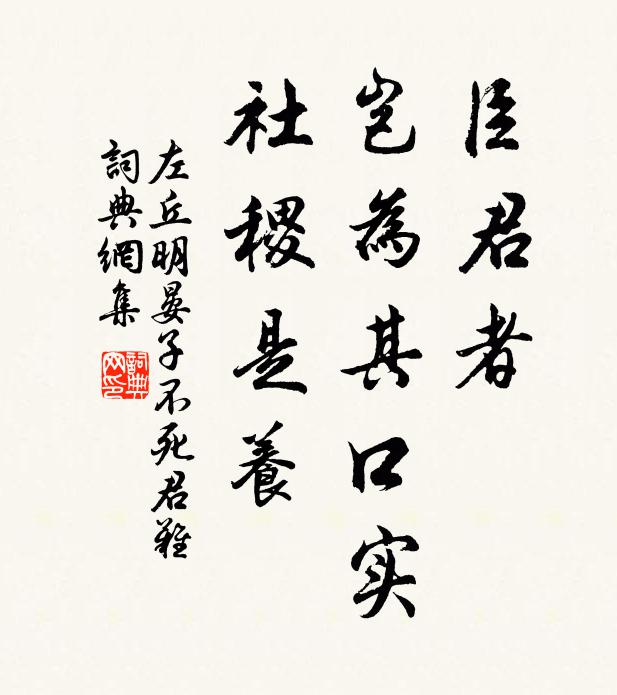 臣君者
岂為其口实
社稷是養
左丘明晏子不死君難
詞典網集
詞典网印